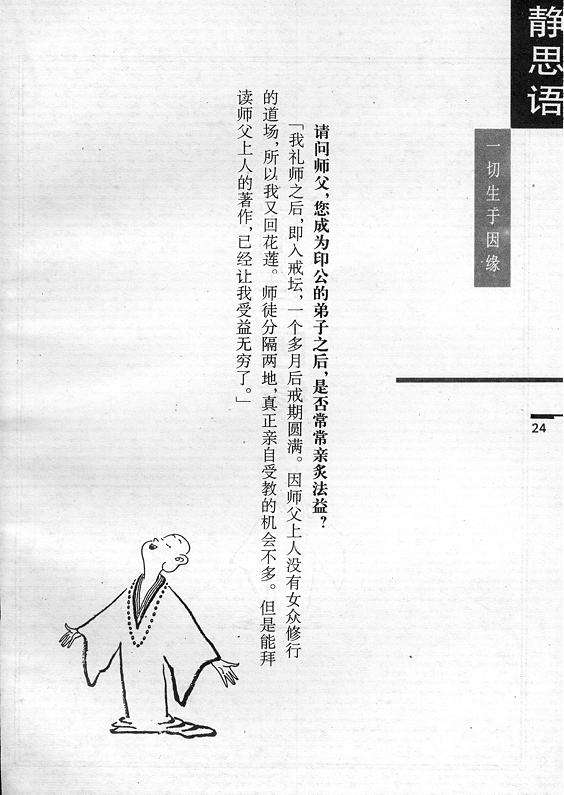 静思语
一切生于因缘
24
请问师父，您成为印公的弟子之后，是否常常亲炙法益？
「我礼师之后，即入戒坛，一个多月后戒期圆满。因师父上人没有女众修行
的道场，所以我又回花莲。师徒分隔两地，真正亲自受教的机会不多。但是能拜
读师父上人的著作，已经让我受益无穷了。」